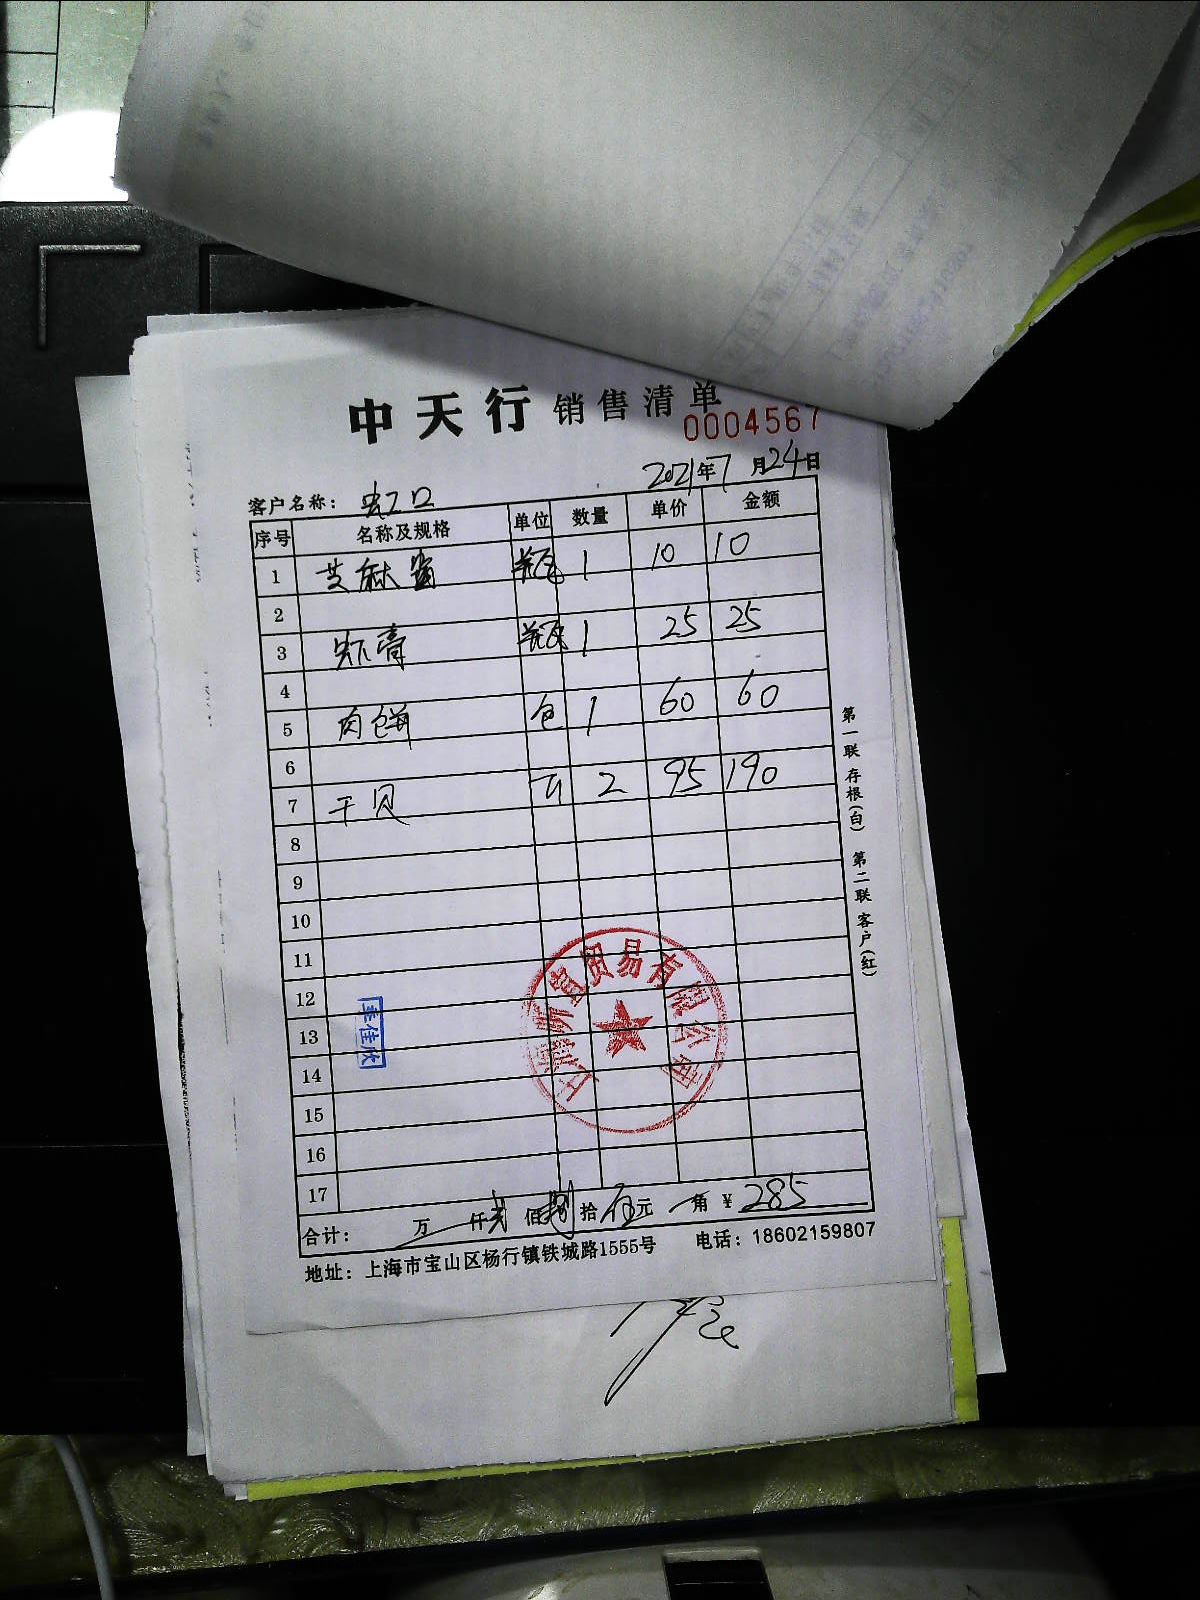 中天行 销售清单
0004567
2021年7月24日
客户名称： 虹口
序号 名称及规格 单位 数量 单价 金额
1 芝麻酱 瓶 1 10 10
2
3 虾膏 瓶 1 25 25
4
5 肉饼 包 1 60 60
6
7 干贝 2 95 190
8
9
10
11
12
13
14
15
16
17
合计： 万 仟 贰 佰 捌 拾 伍 元 角 ￥ 285
地址：上海市宝山区杨行镇铁城路1555号 电话：18602159807
第一联 存根（白） 第二联 客户（红）
佳欣
贸易有限公司